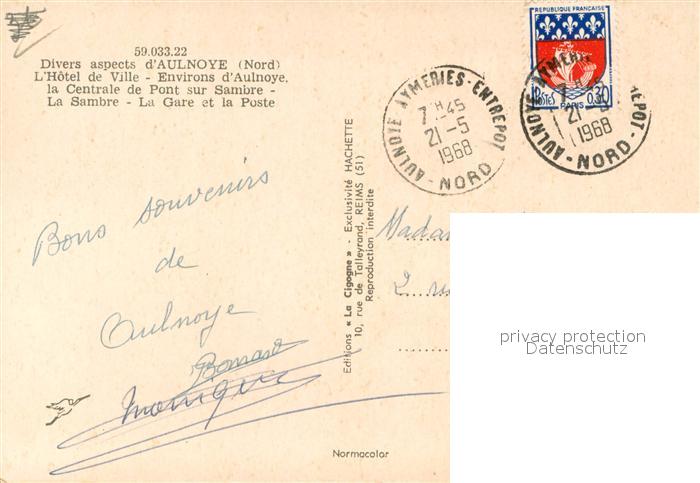 59.033.22
Divers aspects d'AULNOYE (Nord)
L'Hôtel de Ville - Environs d'Aulnoye,
la Centrale de Pont sur Sambre -
La Sambre - La Gare et la Poste
Bons souvenirs
de
Aulnoye
Monique
Editions « La Cigogne » - Exclusivité HACHETTE
10, rue de Talleyrand, REIMS (51)
Reproduction interdite
Normacolor
AULNOYE AYMERIES-ENTREPOT
7 H 45
21-5
1968
NORD
REPUBLIQUE FRANÇAISE
POSTES
0,30
PARIS
AULNOYE AYMERIES
ENTREPOT
21
1968
NORD
Madame
2 rue
privacy protection
Datenschutz